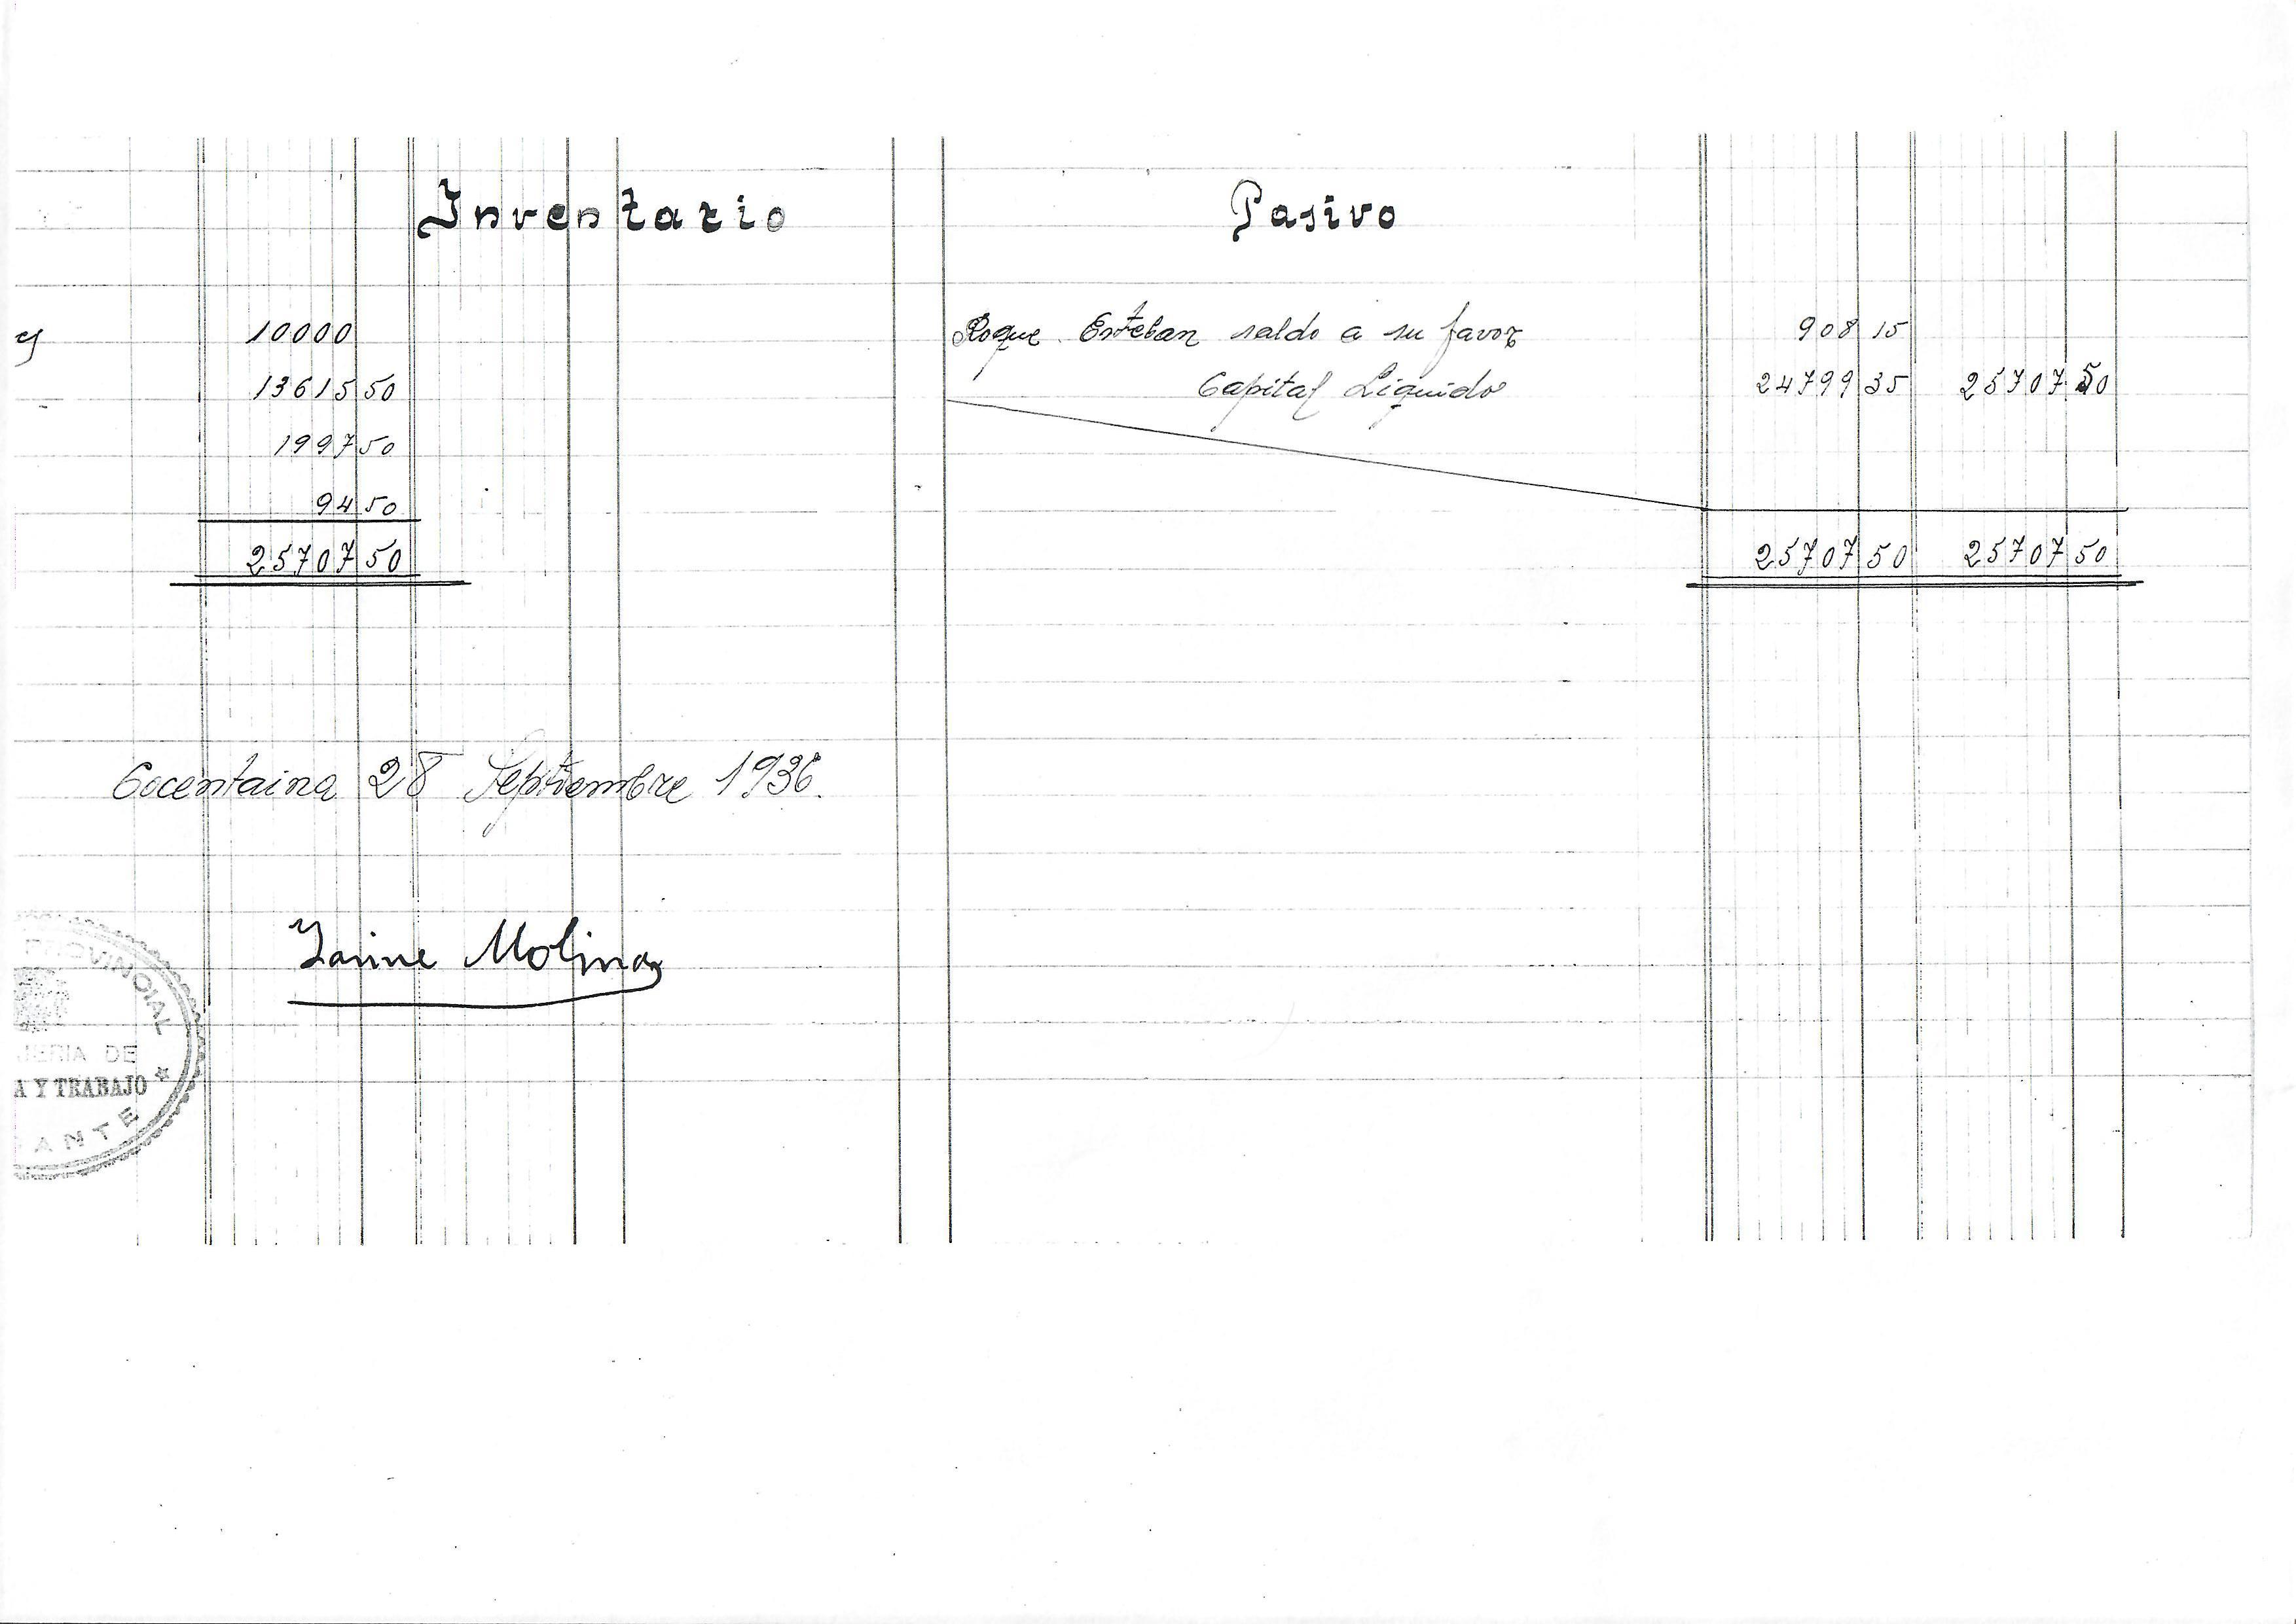 Inventario
y 10000
13615 50
1997 50
94 50
25707 50
Cocentaina 28 Septiembre 1936.
Jaime Molina
PROVINCIAL
DE
A Y TRABAJO *
ANTE
Pasivo
Roque Esteban saldo a su favor 908 15
Capital Liquido 24799 35 25707 50
25707 50 25707 50